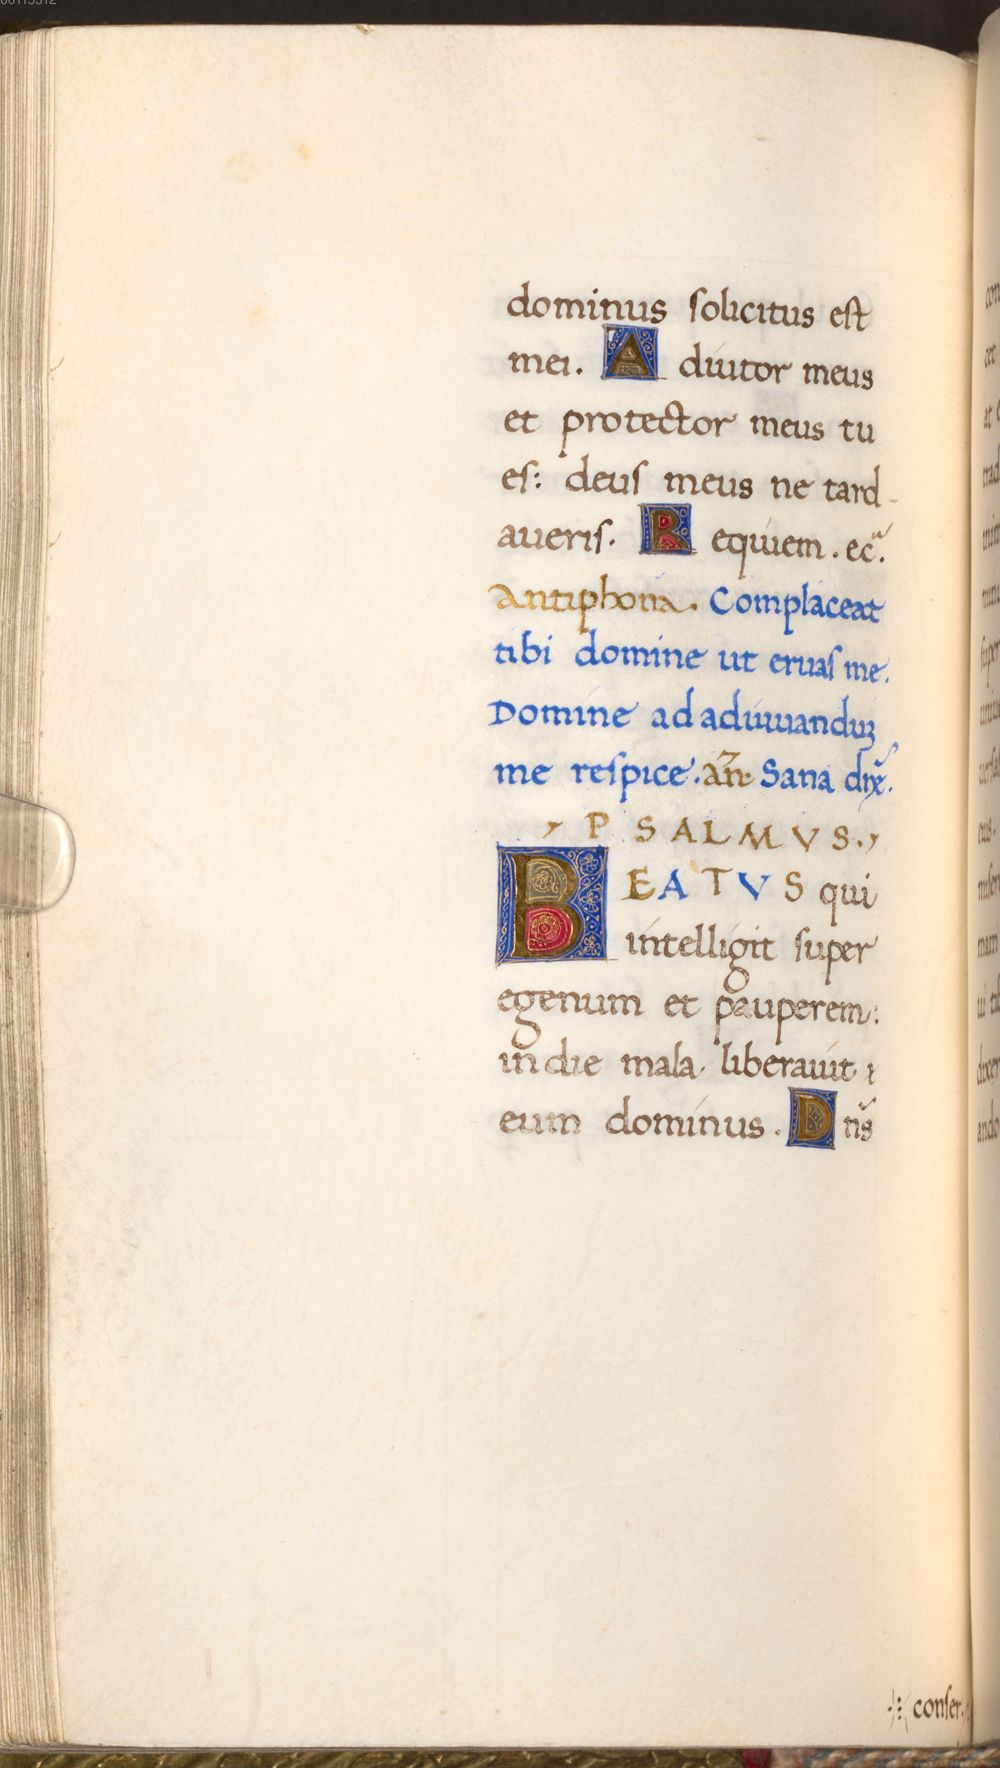 dominus ſolicitus eſt
mei. A diutor meus
et protector meus tu
eſ: deuſ meus ne tard
aueriſ. R equiem. ec̃.
Antiphona. Complaceat
tibi domine ut eruaſ me.
Domine ad adiuuanduȝ
me reſpice. añ Sana dñe.
P S A L M V S.
B E A T V S qui
intelligit super
egenum et pauperem:
in die mala liberauit
eum dominus. D ñs
conſer